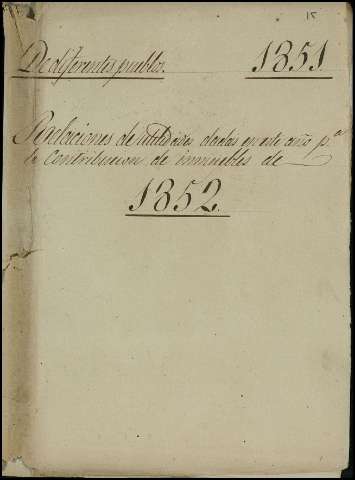 15
De diferentes pueblos. 1851
Relaciones de utilidades dadas en este año pª
la Contribucion de inmuebles de
1852.